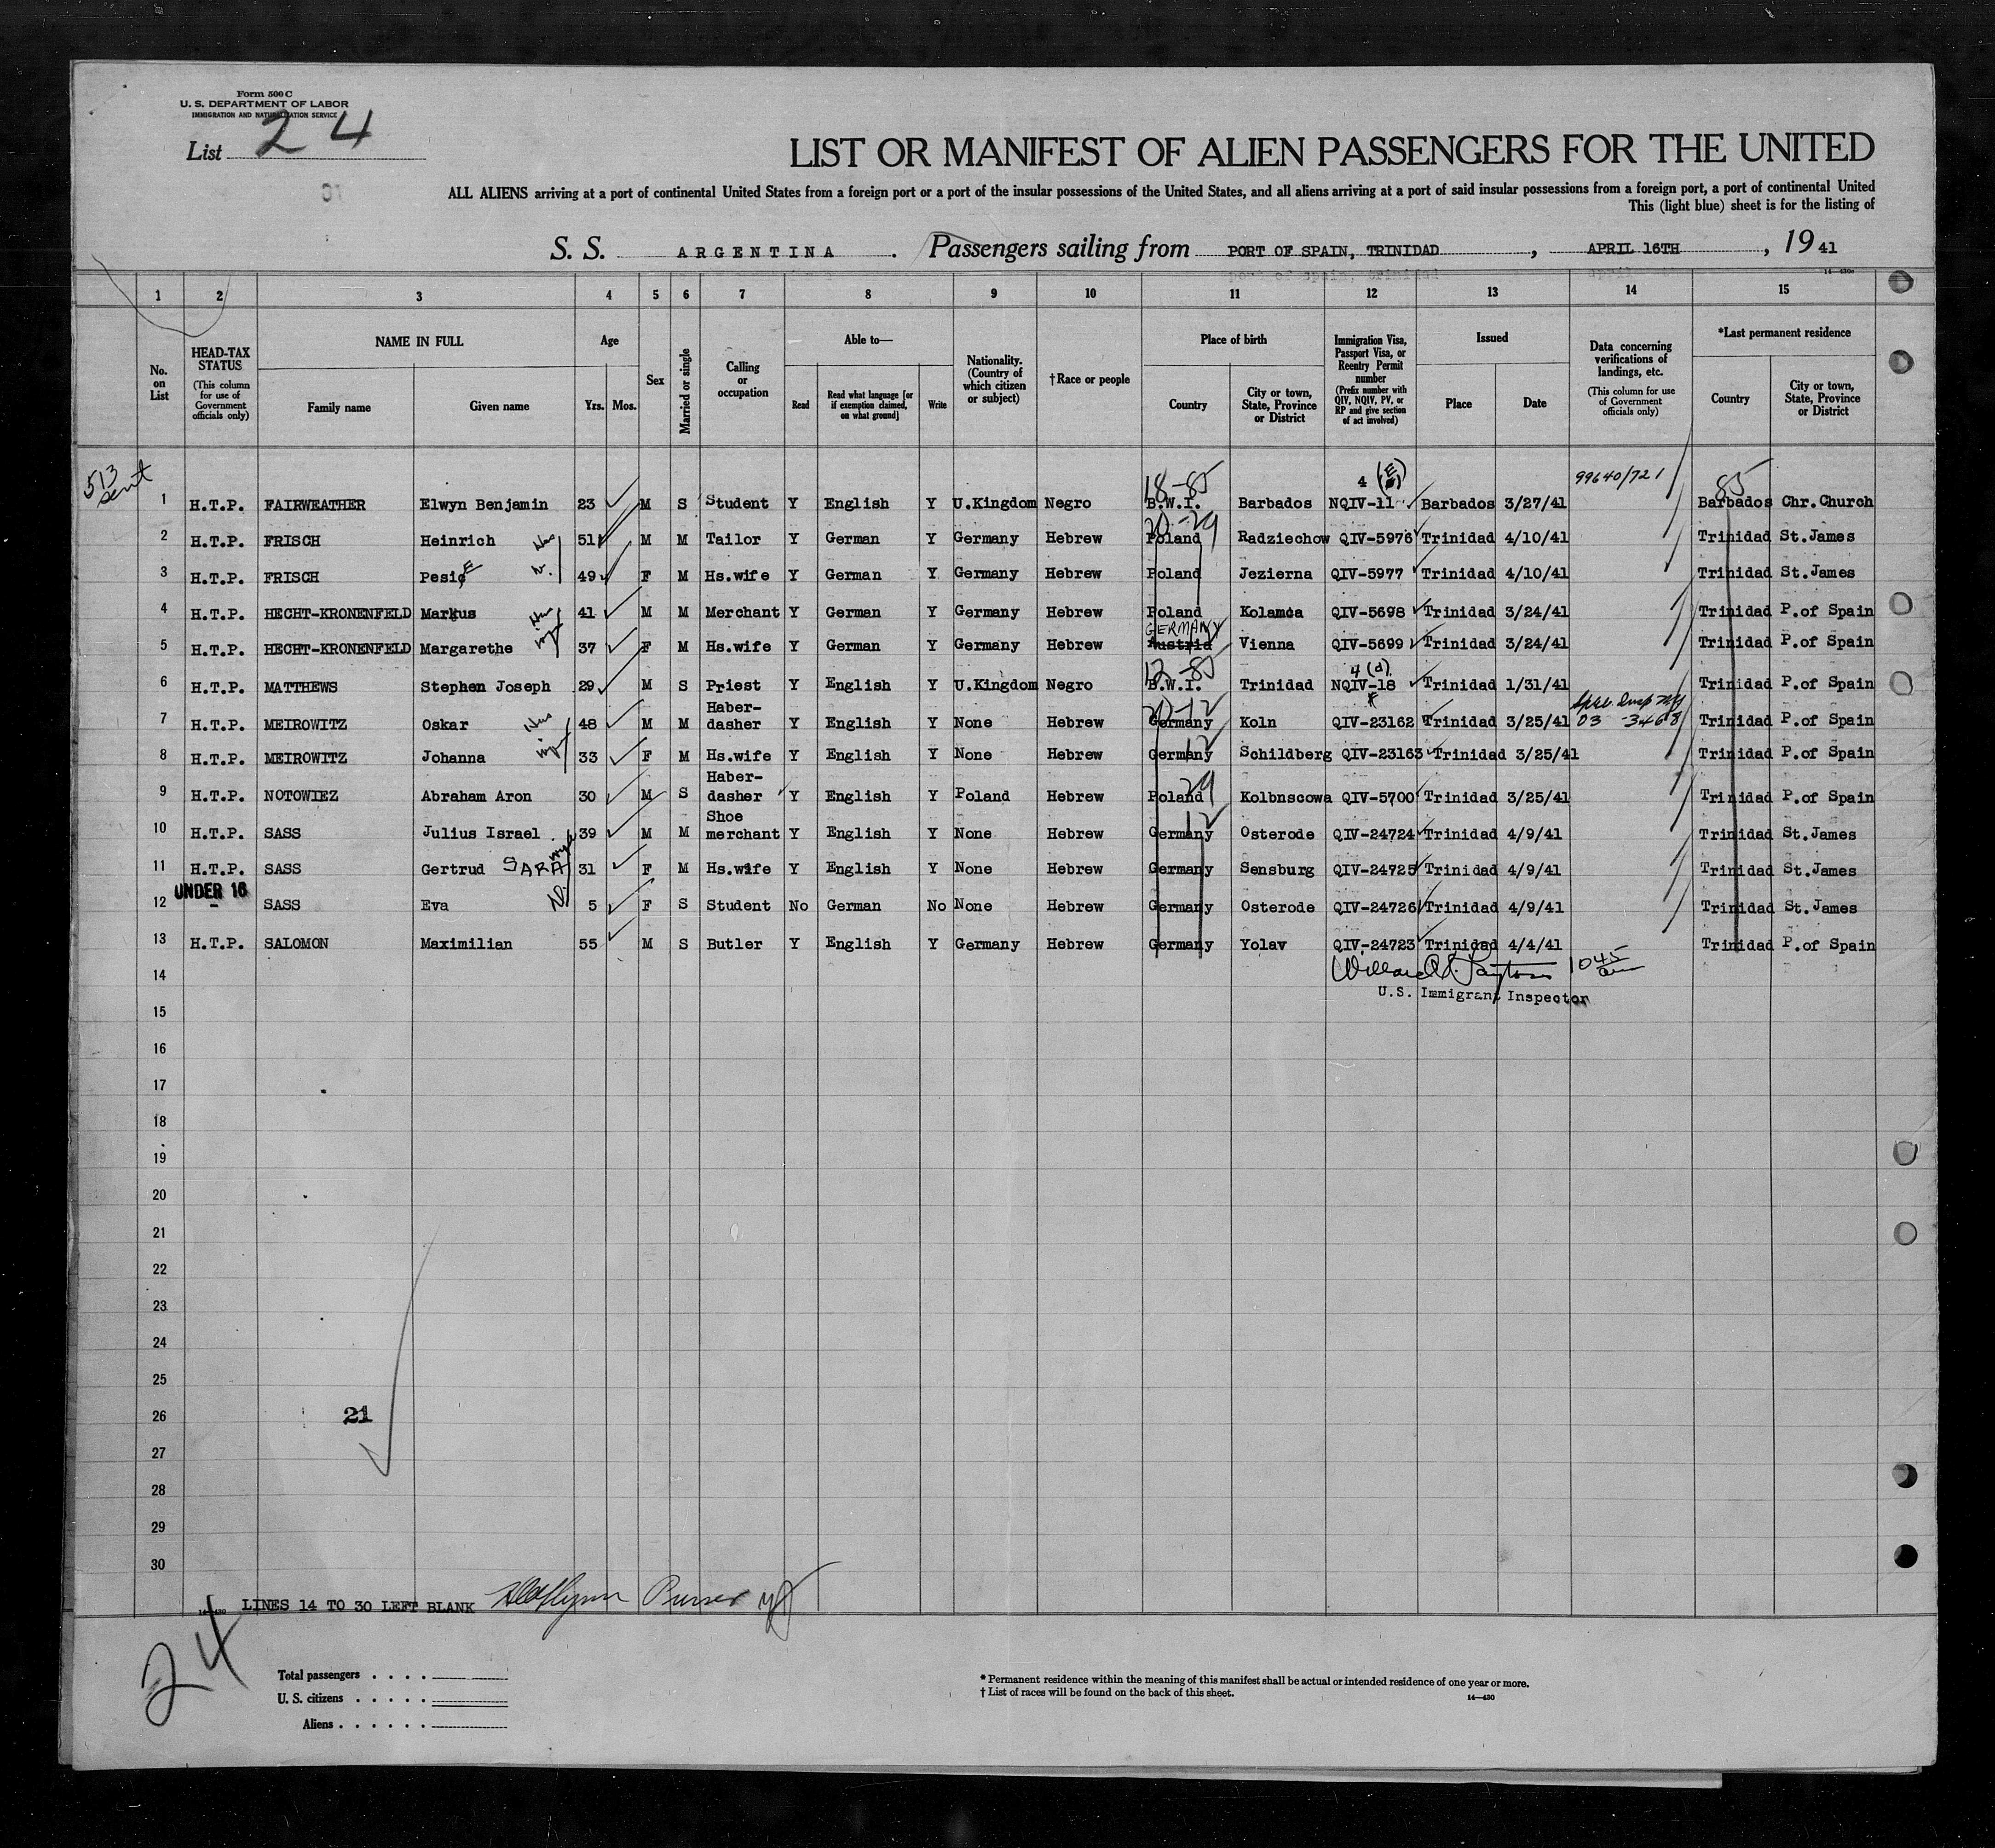 Form 500 C
U. S. DEPARTMENT OF LABOR
IMMIGRATION AND NATURALIZATION SERVICE
List 24
LIST OR MANIFEST OF ALIEN PASSENGERS FOR THE UNITED
ALL ALIENS arriving at a port of continental United States from a foreign port or a port of the insular possessions of the United States, and all aliens arriving at a port of said insular possessions from a foreign port, a port of continental United
This (light blue) sheet is for the listing of
S. S. ARGENTINA. Passengers sailing from PORT OF SPAIN, TRINIDAD, APRIL 16TH, 19 41
14—430
1 2 3 4 5 6 7 8 9 10 11 12 13 14 15
No. on List
HEAD-TAX STATUS (This column for use of Government officials only)
NAME IN FULL
Family name Given name
Age Yrs. Mos.
Sex
Married or single
Calling or occupation
Able to—
Read
Read what language [or if exemption claimed, on what ground]
Write
Nationality. (Country of which citizen or subject)
†Race or people
Place of birth
Country
City or town, State, Province or District
Immigration Visa, Passport Visa, or Reentry Permit number (Prefix number with QIV, NQIV, PV, or RP and give section of act involved)
Issued
Place Date
Data concerning verifications of landings, etc. (This column for use of Government officials only)
*Last permanent residence
Country
City or town, State, Province or District
513 sent
18-85 4 (E) 99640/721 85
1 H.T.P. FAIRWEATHER Elwyn Benjamin 23 M S Student Y English Y U.Kingdom Negro B.W.I. Barbados NQIV-11 Barbados 3/27/41 Barbados Chr.Church
20-29
2 H.T.P. FRISCH Heinrich 51 M M Tailor Y German Y Germany Hebrew Poland Radziechow QIV-5976 Trinidad 4/10/41 Trinidad St.James
3 H.T.P. FRISCH PesiE 49 F M Hs.wife Y German Y Germany Hebrew Poland Jezierna QIV-5977 Trinidad 4/10/41 Trinidad St.James
4 H.T.P. HECHT-KRONENFELD Markus 41 M M Merchant Y German Y Germany Hebrew Poland Kolamea QIV-5698 Trinidad 3/24/41 Trinidad P.of Spain
GERMANY
5 H.T.P. HECHT-KRONENFELD Margarethe 37 F M Hs.wife Y German Y Germany Hebrew Austria Vienna QIV-5699 Trinidad 3/24/41 Trinidad P.of Spain
12-85 4 (d)
6 H.T.P. MATTHEWS Stephen Joseph 29 M S Priest Y English Y U.Kingdom Negro B.W.I. Trinidad NQIV-18 Trinidad 1/31/41 Trinidad P.of Spain
20-12
7 H.T.P. MEIROWITZ Oskar 48 M M Haber-dasher Y English Y None Hebrew Germany Koln QIV-23162 Trinidad 3/25/41 03 -3468 Trinidad P.of Spain
12
8 H.T.P. MEIROWITZ Johanna 33 F M Hs.wife Y English Y None Hebrew Germany Schildberg QIV-23163 Trinidad 3/25/41 Trinidad P.of Spain
29
9 H.T.P. NOTOWIEZ Abraham Aron 30 M S Haber-dasher Y English Y Poland Hebrew Poland Kolbnscowa QIV-5700 Trinidad 3/25/41 Trinidad P.of Spain
12
10 H.T.P. SASS Julius Israel 39 M M Shoe merchant Y English Y None Hebrew Germany Osterode QIV-24724 Trinidad 4/9/41 Trinidad St.James
11 H.T.P. SASS Gertrud SARA 31 F M Hs.wife Y English Y None Hebrew Germany Sensburg QIV-24725 Trinidad 4/9/41 Trinidad St.James
UNDER 16
12 - SASS Eva 5 F S Student No German No None Hebrew Germany Osterode QIV-24726 Trinidad 4/9/41 Trinidad St.James
13 H.T.P. SALOMON Maximilian 55 M S Butler Y English Y Germany Hebrew Germany Yolav QIV-24723 Trinidad 4/4/41 Trinidad P.of Spain
14 1045 am
U.S. Immigrant Inspector
15
16
17
18
19
20
21
22
23
24
25
26 21
27
28
29
30
14—430 LINES 14 TO 30 LEFT BLANK Purser
24
Total passengers . . . .
U. S. citizens . . . . .
Aliens . . . . . .
* Permanent residence within the meaning of this manifest shall be actual or intended residence of one year or more.
† List of races will be found on the back of this sheet.
14—430